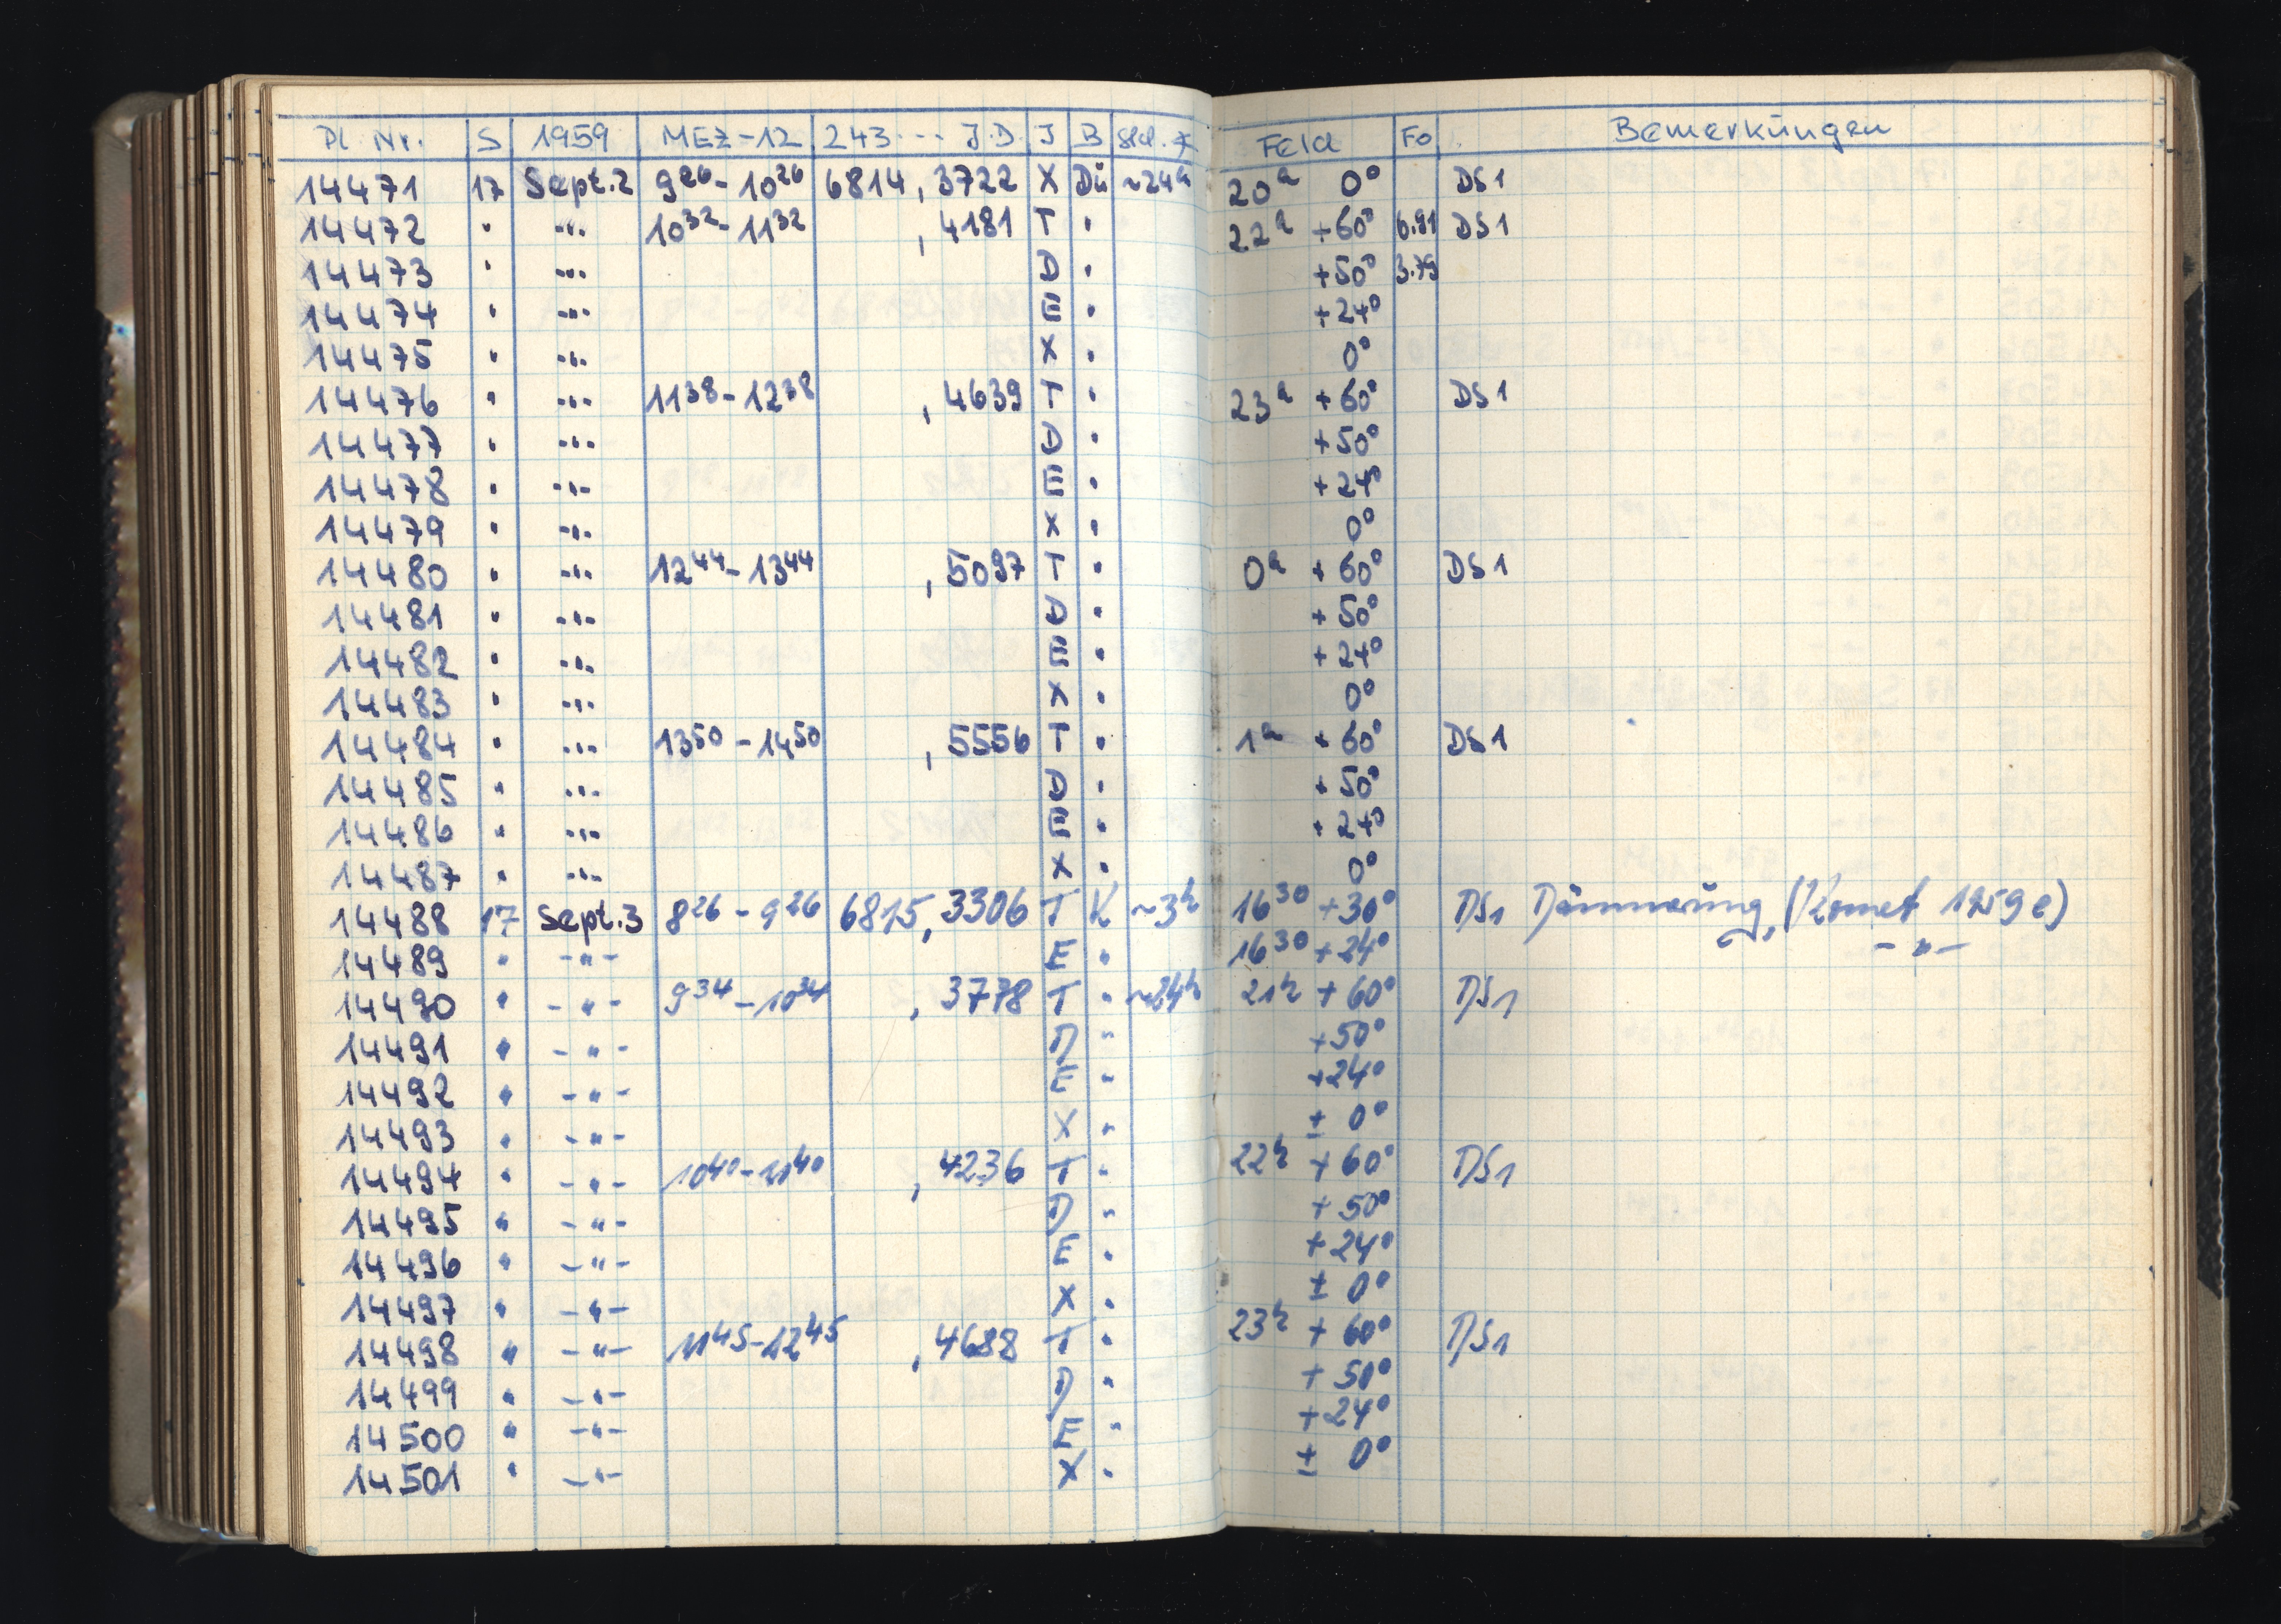 Pl. Nr. S 1959 MEZ-12 243... J.D. J B Std. * Feld Fo Bemerkungen
14471 17 Sept. 2 9²⁶ - 10²⁶ 6814,3722 X Dü ~24ʰ 20ʰ 0° DS1
14472 " -"- 10³² - 11³² ,4181 T " 22ʰ +60° 6.91 DS1
14473 " -"- D " +50° 3.79
14474 " -"- E " +24°
14475 " -"- X " 0°
14476 " -"- 11³⁸ - 12³⁸ ,4639 T " 23ʰ +60° DS1
14477 " -"- D " +50°
14478 " -"- E " +24°
14479 " -"- X " 0°
14480 " -"- 12⁴⁴ - 13⁴⁴ ,5097 T " 0ʰ +60° DS1
14481 " -"- D " +50°
14482 " -"- E " +24°
14483 " -"- X " 0°
14484 " -"- 13⁵⁰ - 14⁵⁰ ,5556 T " 1ʰ +60° DS1
14485 " -"- D " +50°
14486 " -"- E " +24°
14487 " -"- X " 0°
14488 17 Sept. 3 8²⁶ - 9²⁶ 6815,3306 T K ~3ʰ 16³⁰ +30° DS1 Dämmerung, (Komet 1959e)
14489 " -"- E " 16³⁰ +24° -"-
14490 " -"- 9³⁴ - 10³⁴ ,3778 T " ~24ʰ 21ʰ +60° DS1
14491 " -"- D " +50°
14492 " -"- E " +24°
14493 " -"- X " ± 0°
14494 " -"- 10⁴⁰ - 11⁴⁰ ,4236 T " 22ʰ +60° DS1
14495 " -"- D " +50°
14496 " -"- E " +24°
14497 " -"- X " ± 0°
14498 " -"- 11⁴⁵ - 12⁴⁵ ,4688 T " 23ʰ +60° DS1
14499 " -"- D " +50°
14500 " -"- E " +24°
14501 " -"- X " ± 0°